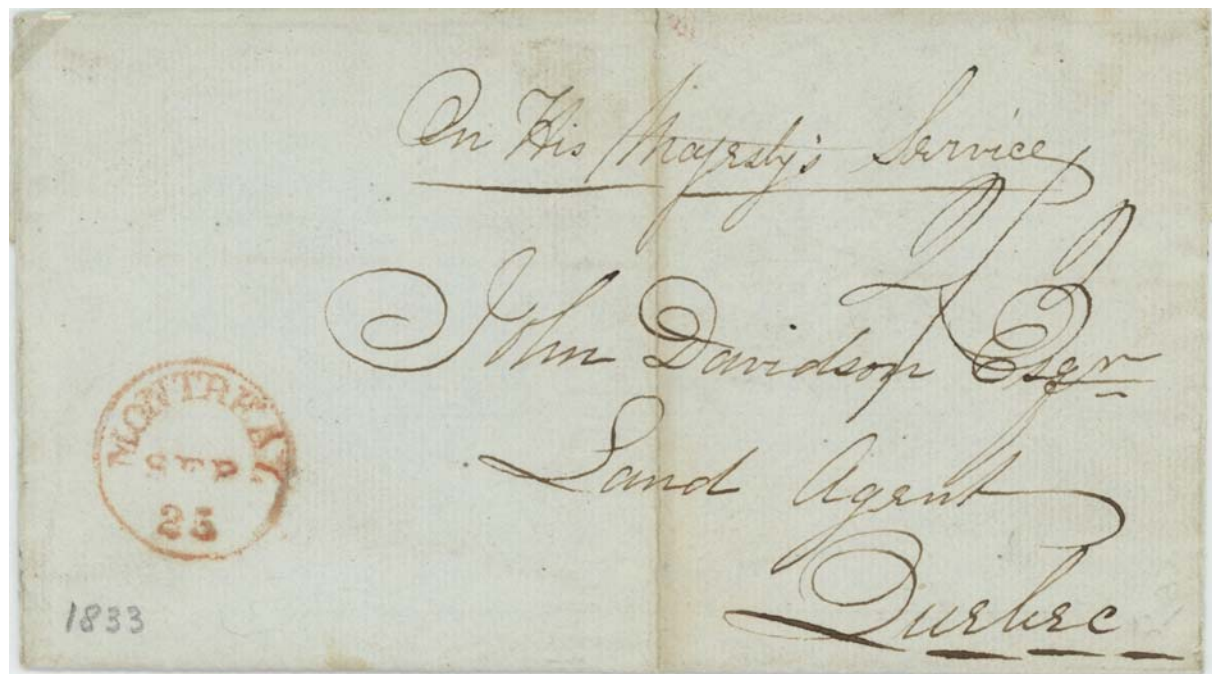 On His Majesty's Service
John Davidson Esqr
Land Agent
Quebec
MONTREAL
SEP
25
1833